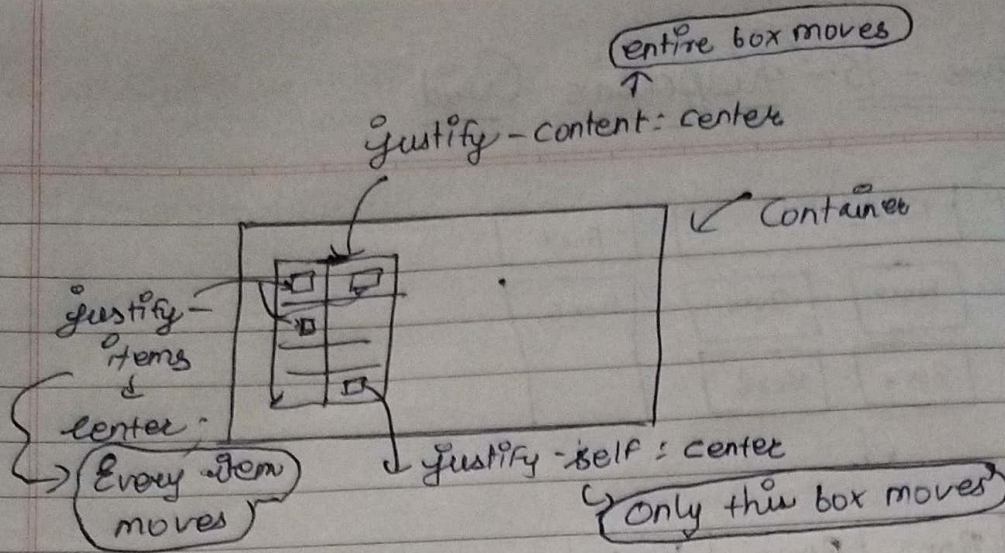 entire box moves
justify-content: center
Container
justify-
items
center
Every item
moves
justify-self: center
only this box moves